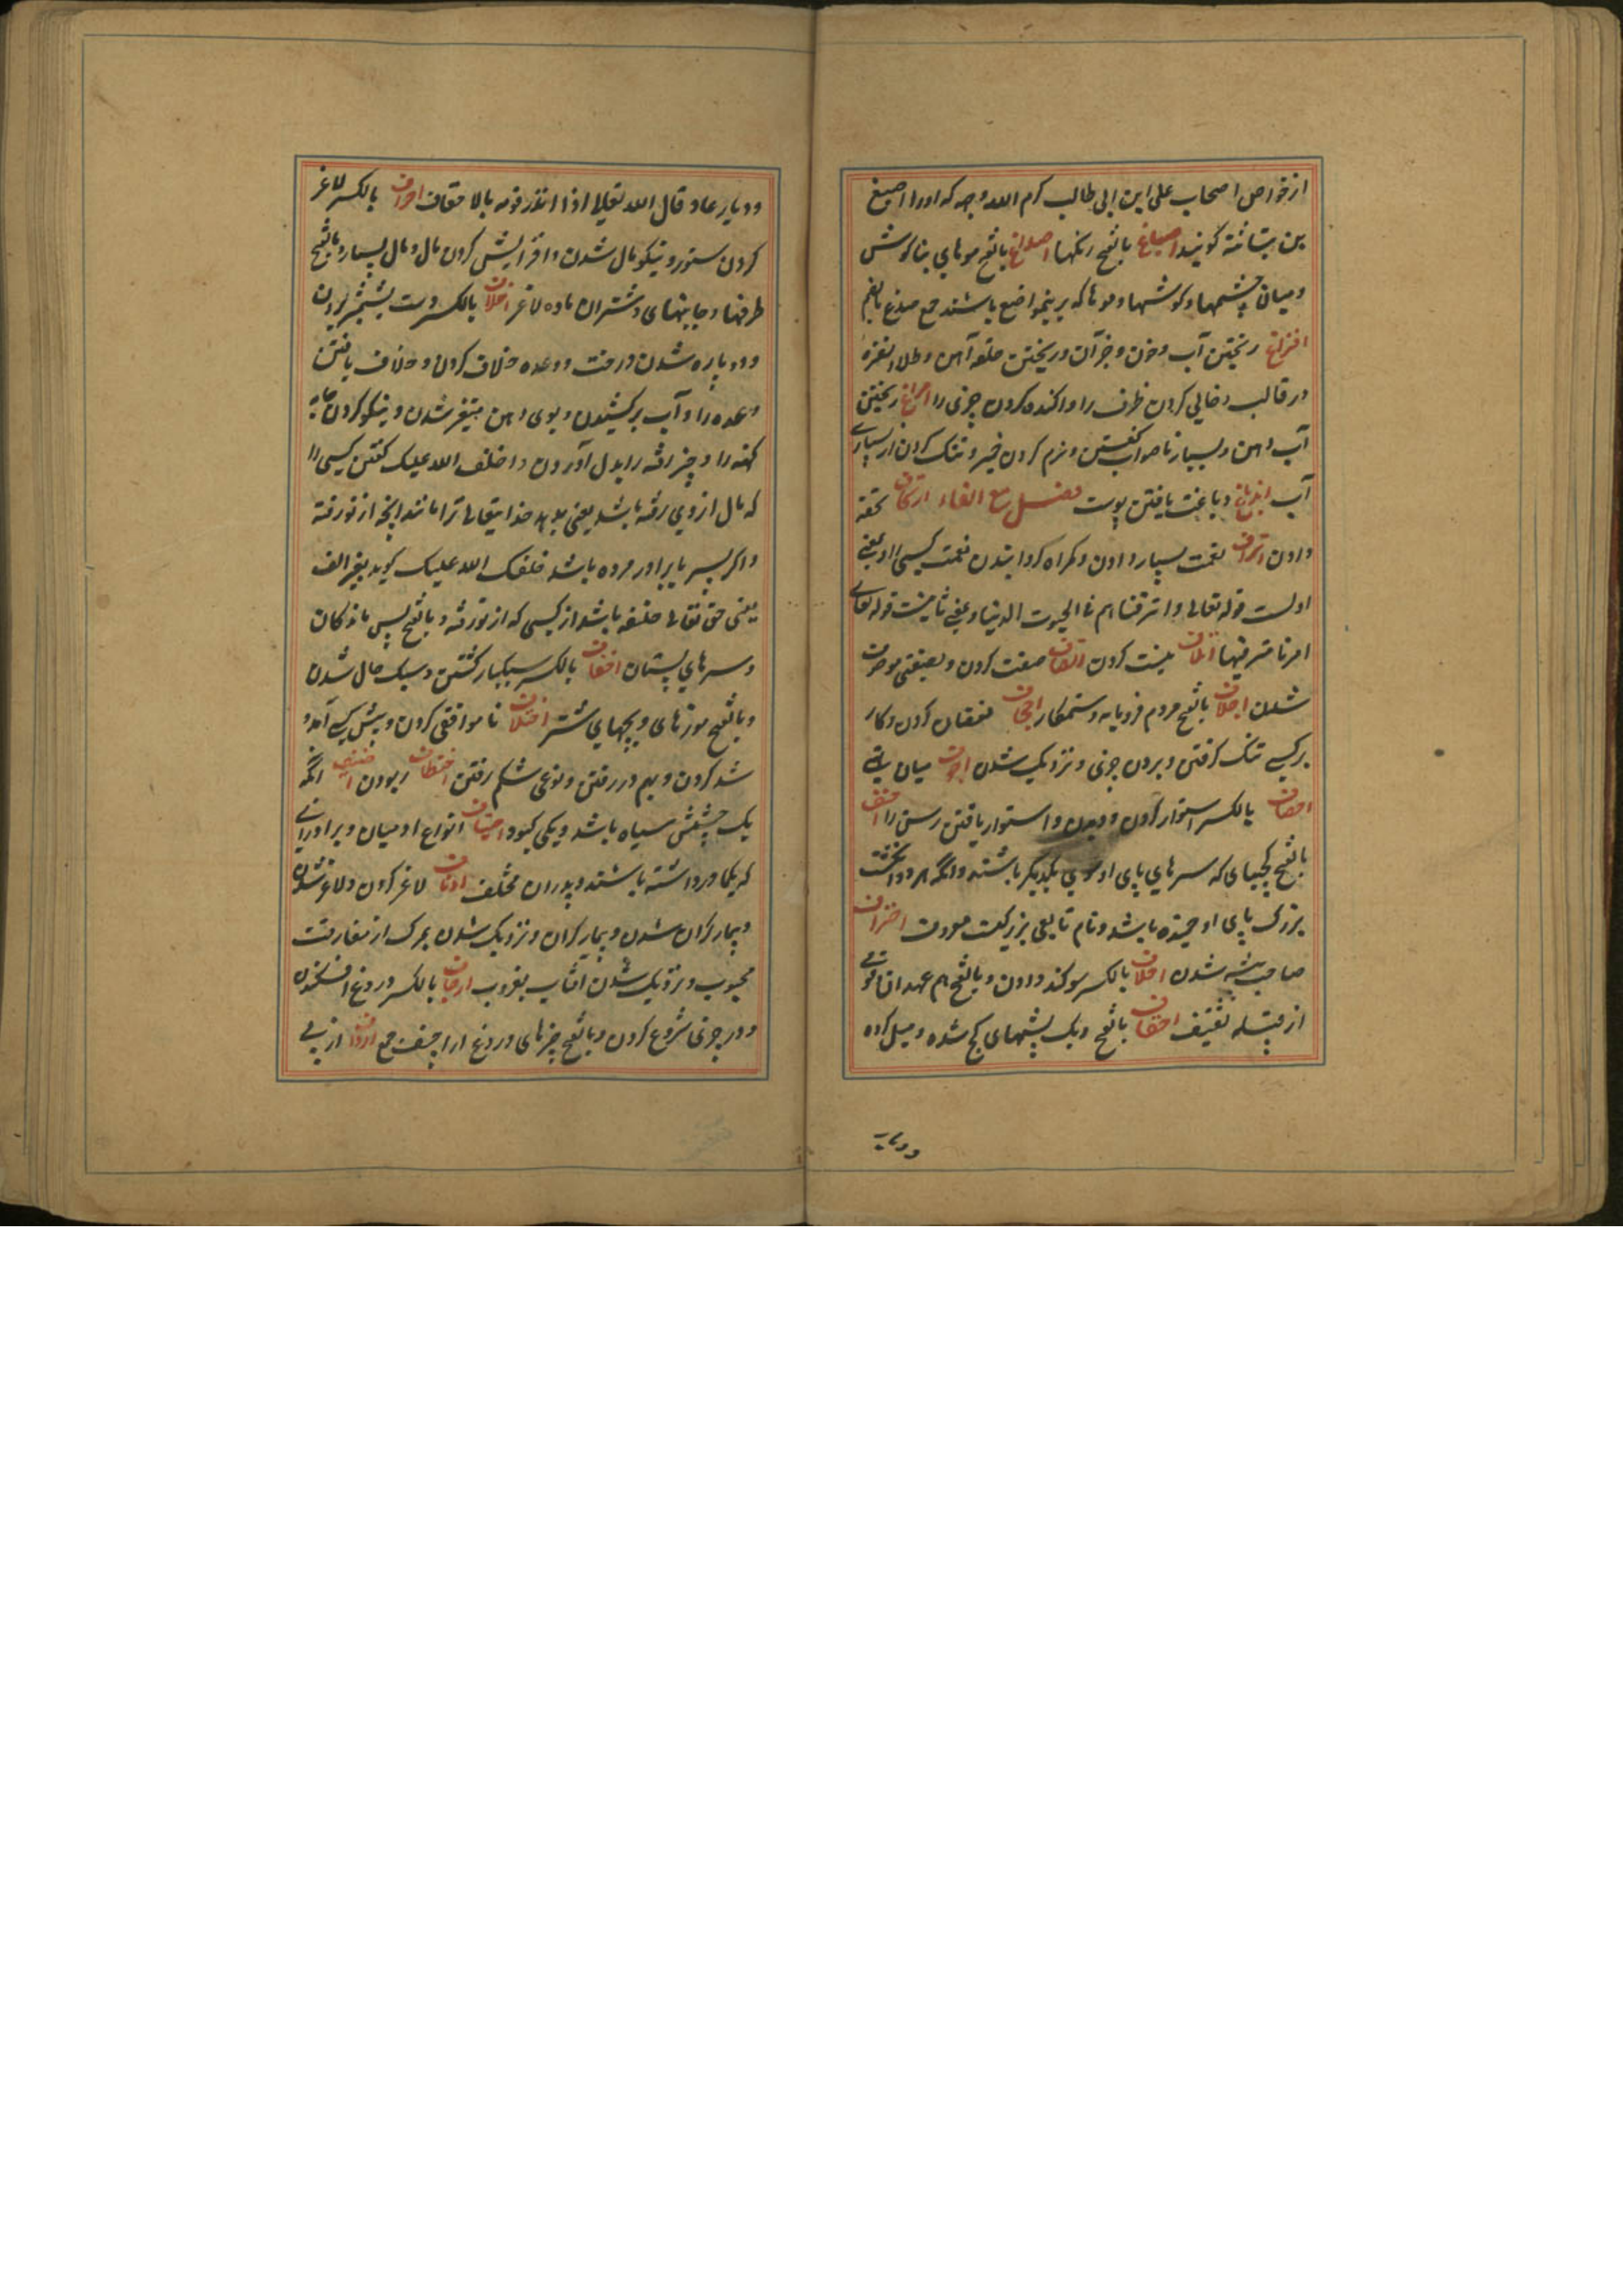 از خواص اصحاب علی ابن ابی طالب کرم الله وجهه که اورا اصبغ
بن بتاتة کویند اصباغ بالفتح رنکها اصداغ بالفتح موهای بناکوش
ومیان چشمها وکوشها وموها که برینمواضع باشند جمع صدغ بالضم
افراغ ریختن آب وخون وجز آن وریختن حلقه آهن وطلا ونقره
در قالب وخالی کردن ظرف را واکنده کردن چیزی را امراغ ریختن
آب دهن وبسیار ناصواب کفتن ونرم کردن خمیر وتنک کردن از بسیاری
آب اندباغ دباغت یافتن پوست فصل مع الفاء اتحاف تحفه
دادن اتراف نعمت بسیار دادن وکمراه کردانیدن نعمت کسی را وبمعنی
اولست قوله تعالی واترفناهم فی الحیوت الدنیا وبمعنی ثانیست قوله تعالی
امرنا مترفیها اتلاف نیست کردن اتصاف صفت کردن وبصفتی موصوف
شدن اجلاف بالفتح مردم فرومایه وستمکار اجحاف نقصان کردن وکار
برکسی تنک کرفتن وبردن چیزی ونزدیک شدن اجوف میان تهی
احصاف بالکسر استوار کردن ودویدن واستوار بافتن رسن را احنف
بالفتح کجپای که سرهای پای او سوی یکدیکر باشند وانکه هر دو انکشت
بزرک پای او خمیده باشد ونام تابعی بزرکیست معروف احتراف
صاحب پیشه شدن احلاف بالکسر سوکند دادن وبالفتح هم عهدان وقومی
از قبیله ثقیف احقاف بالفتح ریک پشتهای کج شده ومیل کرده
ودیار
ودیار عاد قال الله تعالی اذا انذر قومه بالاحقاف احراف بالکسر لاغر
کردن ستور ونیکو مال شدن وافزایش کردن مال ومال بسیار وبالفتح
طرفها وجانبهای وشتران ماده لاغر اخلاف بالکسر دست بشمشیر بردن
ودوباره شدن درخت ووعده خلاف کردن وخلاف یافتن
وعده را وآب برکشیدن وبوی دهن متغیر شدن ونیکو کردن جامه
کهنه را وچیز رفته را بدل آوردن واخلف الله علیک کفتن کسی را
که مال از وی رفته باشد یعنی بدهد خدایتعالی ترا مانند آنچه از تو رفته
واکر پسر یا برادر مرده باشد خلفک الله علیک کوید بغیر الف
یعنی حق تعالی خلیفه باشد از کسی که از تو رفته وبالفتح پس ماندکان
وسرهای پستان اخفاف بالکسر سبکبار کشتن وسبک حال شدن
وبالفتح موزهای وپیهای شتر اختلاف ناموافقی کردن وپیش کسی آمد و
شد کردن وبهم در رفتن ونوعی شکم رفتن اختطاف ربودن اخیف انکه
یک چشمش سیاه باشد ویکی کبود اخیاف انواع ادمیان وبرادرانی
که یکمادر داشته باشند وپدران مختلف ادناف لاغر کردن ولاغر شدن
وبیمار کران شدن وبیمار کران ونزدیک شدن بمرک از مفارقت
محبوب ونزدیک شدن آفتاب بغروب ارجاف بالکسر دروغ افکندن
ودر چیزی شروع کردن وبالفتح چیزهای دروغ اراجیف جمع ارداف از پی